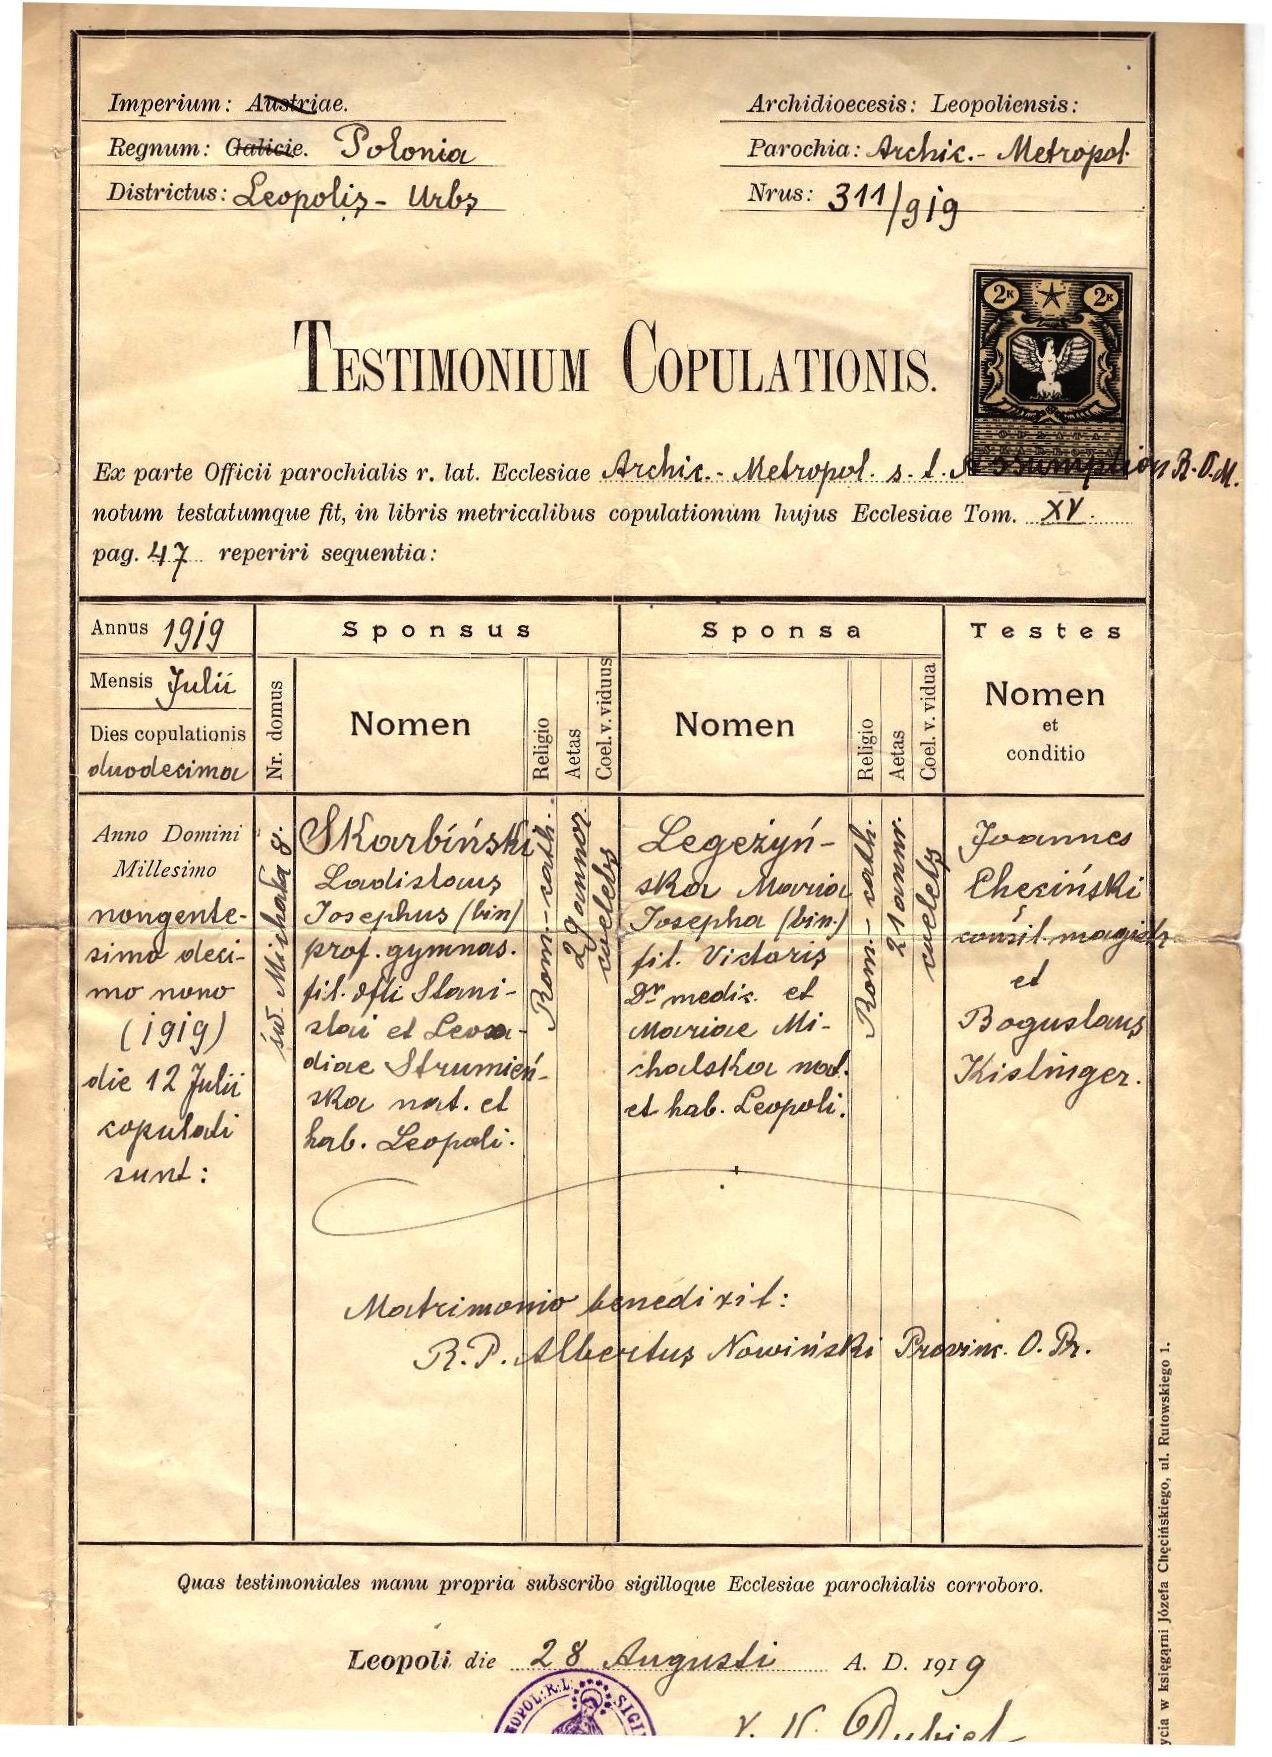 Imperium: Austriae.
Regnum: Galicie. Polonia
Districtus: Leopolis - Urbs
Archidioecesis: Leopoliensis:
Parochia: Archic. - Metropol.
Nrus: 311/919
2K 2K
TESTIMONIUM COPULATIONIS.
Ex parte Officii parochialis r. lat. Ecclesiae Archic. - Metropol. s. t. Assumption B.V.M.
notum testatumque fit, in libris metricalibus copulationum hujus Ecclesiae Tom. XV.
pag. 47 reperiri sequentia:
Annus 1919
Mensis Julii
Dies copulationis
duodecima
Nr. domus
Sponsus
Nomen
Religio
Aetas
Coel. v. viduus
Sponsa
Nomen
Religio
Aetas
Coel. v. vidua
Testes
Nomen
et
conditio
Anno Domini
Millesimo
nongente-
simo deci-
mo nono
(1919)
die 12 Julii
copulati
sunt:
św. Michała 8.
Skarbiński
Ladislaus
Josephus (bin)
prof. gymnas.
fil. Stani-
slai et Leoca-
diae Strumień-
ska nat. et
hab. Leopoli.
Rom.-cath.
29 annor.
coelebs
Legeżyń-
ska Maria
Josepha (bin.)
fil. Victoris
Dr medic. et
Mariae Mi-
chalska nat.
et hab. Leopoli.
Rom.-cath.
21 annor.
coelebs
Joannes
Chęciński
consil. magistr.
et
Boguslaus
Kislinger.
Matrimonio benedixit:
R.P. Albertus Nowiński Provinc. O. Pr.
Quas testimoniales manu propria subscribo sigilloque Ecclesiae parochialis corroboro.
Leopoli die 28 Augusti A. D. 1919
OPOL. R.L. SIGI
ycia w księgarni Józefa Chęcińskiego, ul. Rutowskiego 1.